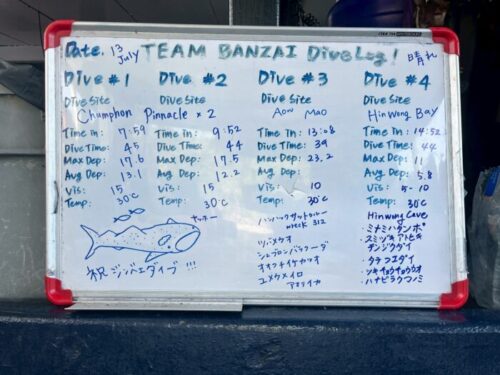 Date. 13 July TEAM BANZAI Dive Log! 晴れ
Dive #1
Dive Site
Champhon Pinnacle × 2
Time in: 7:59
Dive Time: 45
Max Dep: 17.6
Avg Dep: 13.1
Vis: 15
Temp: 30℃
祝 ジンベエダイブ !!!
Dive #2
Dive Site
Time in: 9:52
Dive Time: 44
Max Dep: 17.5
Avg Dep: 12.2
Vis: 15
Temp: 30℃
Dive #3
Dive Site
Aow Mao
Time in: 13:08
Dive Time: 39
Max Dep: 23.2
Avg Dep:
Vis: 10
Temp: 30℃
wreck 312
ツバメウオ
シェブロンバラクーダ
オオクチイケカツオ
ユメウメイロ
アオリイカ
Dive #4
Dive Site
Hinwong Bay
Time in: 14:52
Dive Time: 44
Max Dep: 11
Avg Dep: 5.8
Vis: 5-10
Temp: 30℃
Hinwong Cave
ミナミハタンポ
スミツキアトヒキ
テンジクダイ
タテフエダイ
ツキチョウチョウウオ
ハナビラクマノミ